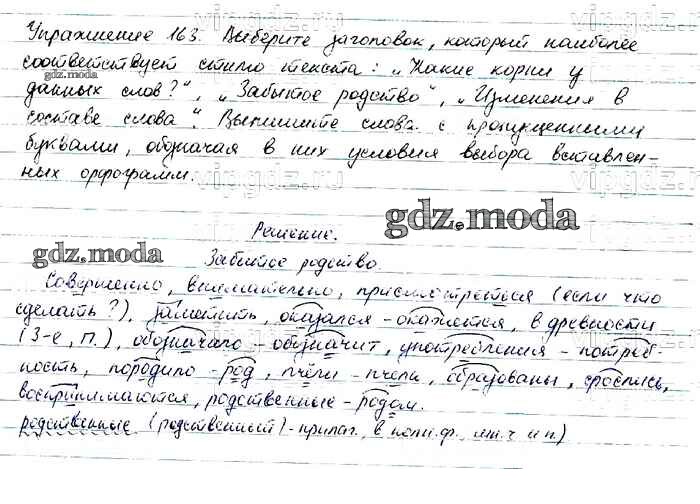 Упражнение 163. Выберите заголовок, который наиболее
соответствует стилю текста: „Какие корни у
данных слов?“, „Забытое родство“, „Изменения в
составе слова“. Выпишите слова с пропущенными
буквами, обозначая в них условия выбора вставлен-
ных орфограмм.
Решение.
Забытое родство.
Совершенно, внимательно, присмотреться (если что
сделать?), заметить, оказался – окажется, в древности
(3-е, П.), обозначало – обозначит, употребления – потреб-
ность, породило – род, пчёлы – пчела, образованы, срослись,
воспринимаются, родственные – родом.
родственные (родственный) – прилаг., в полн.ф., мн.ч. и п.)
vipgdz.ru
gdz.moda
gdz.moda
gdz.moda